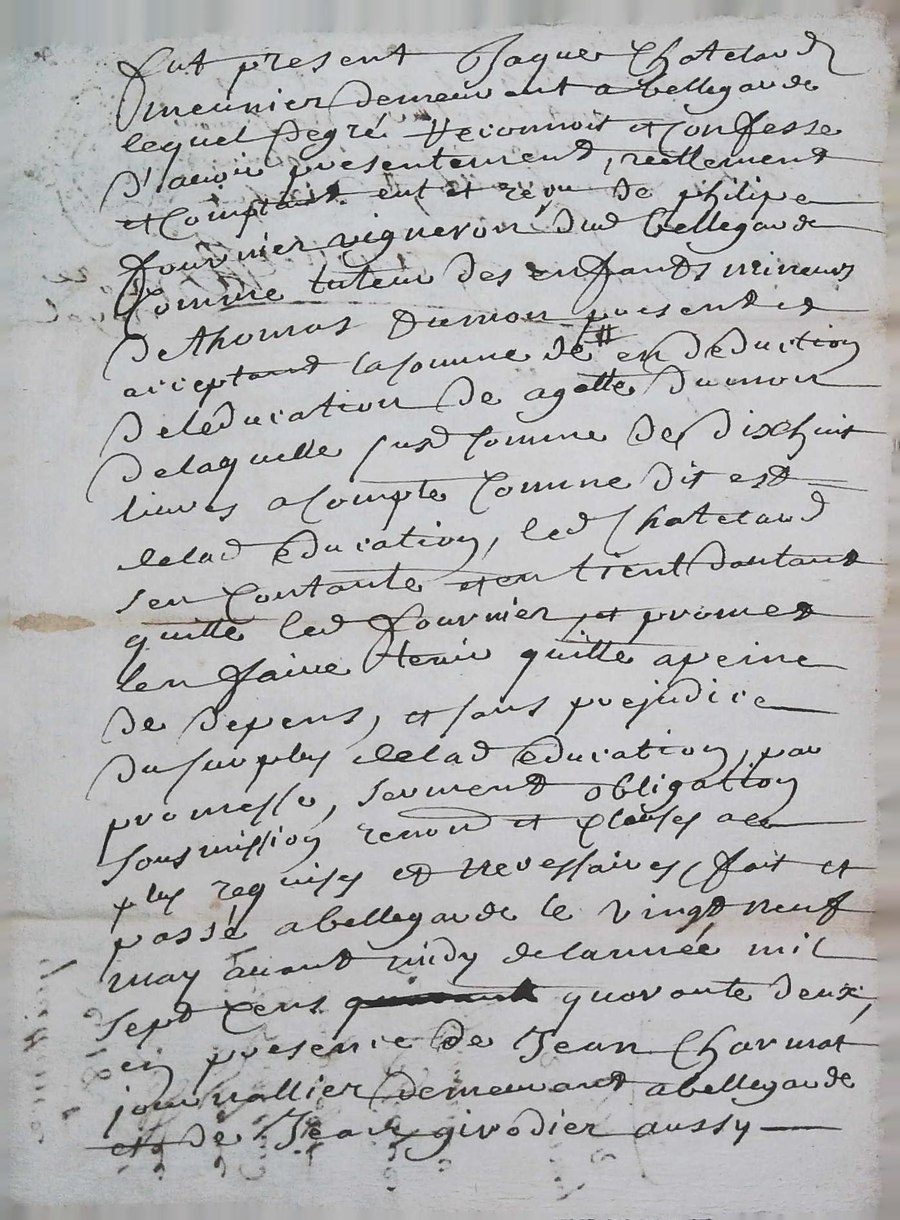 fut present Jaque Chatelard
meunier demeurant a bellegarde
lequel degré reconnoit et confesse
d'avoir presentement, reellement
et comptant eut et reçu de philipe
fournier vigneron dud bellegarde
comme tuteur des enfants mineurs
de thomas Dumon present et
acceptant la somme de 18# en deduction
de leducation de agatte dumon
de laquelle susd somme de dixhuit
livres a compte comme dit est
de lad education, led Chatelard
sen contante et en tient dautant
quitte led fournier, et promet
len faire tenir quitte a peine
de depens, et sans prejudice
du surplus de lad education, par
promesse, serment obligation
sousmission renond et clauses a ce
plus requises et necessaires, fait et
passé a bellegarde le vingt neuf
may avant midy de lannée mil
sept cens quarante deux,
en presence de Jean Charmat
journallier demeurant a bellegarde
et de Jean girodier aussy